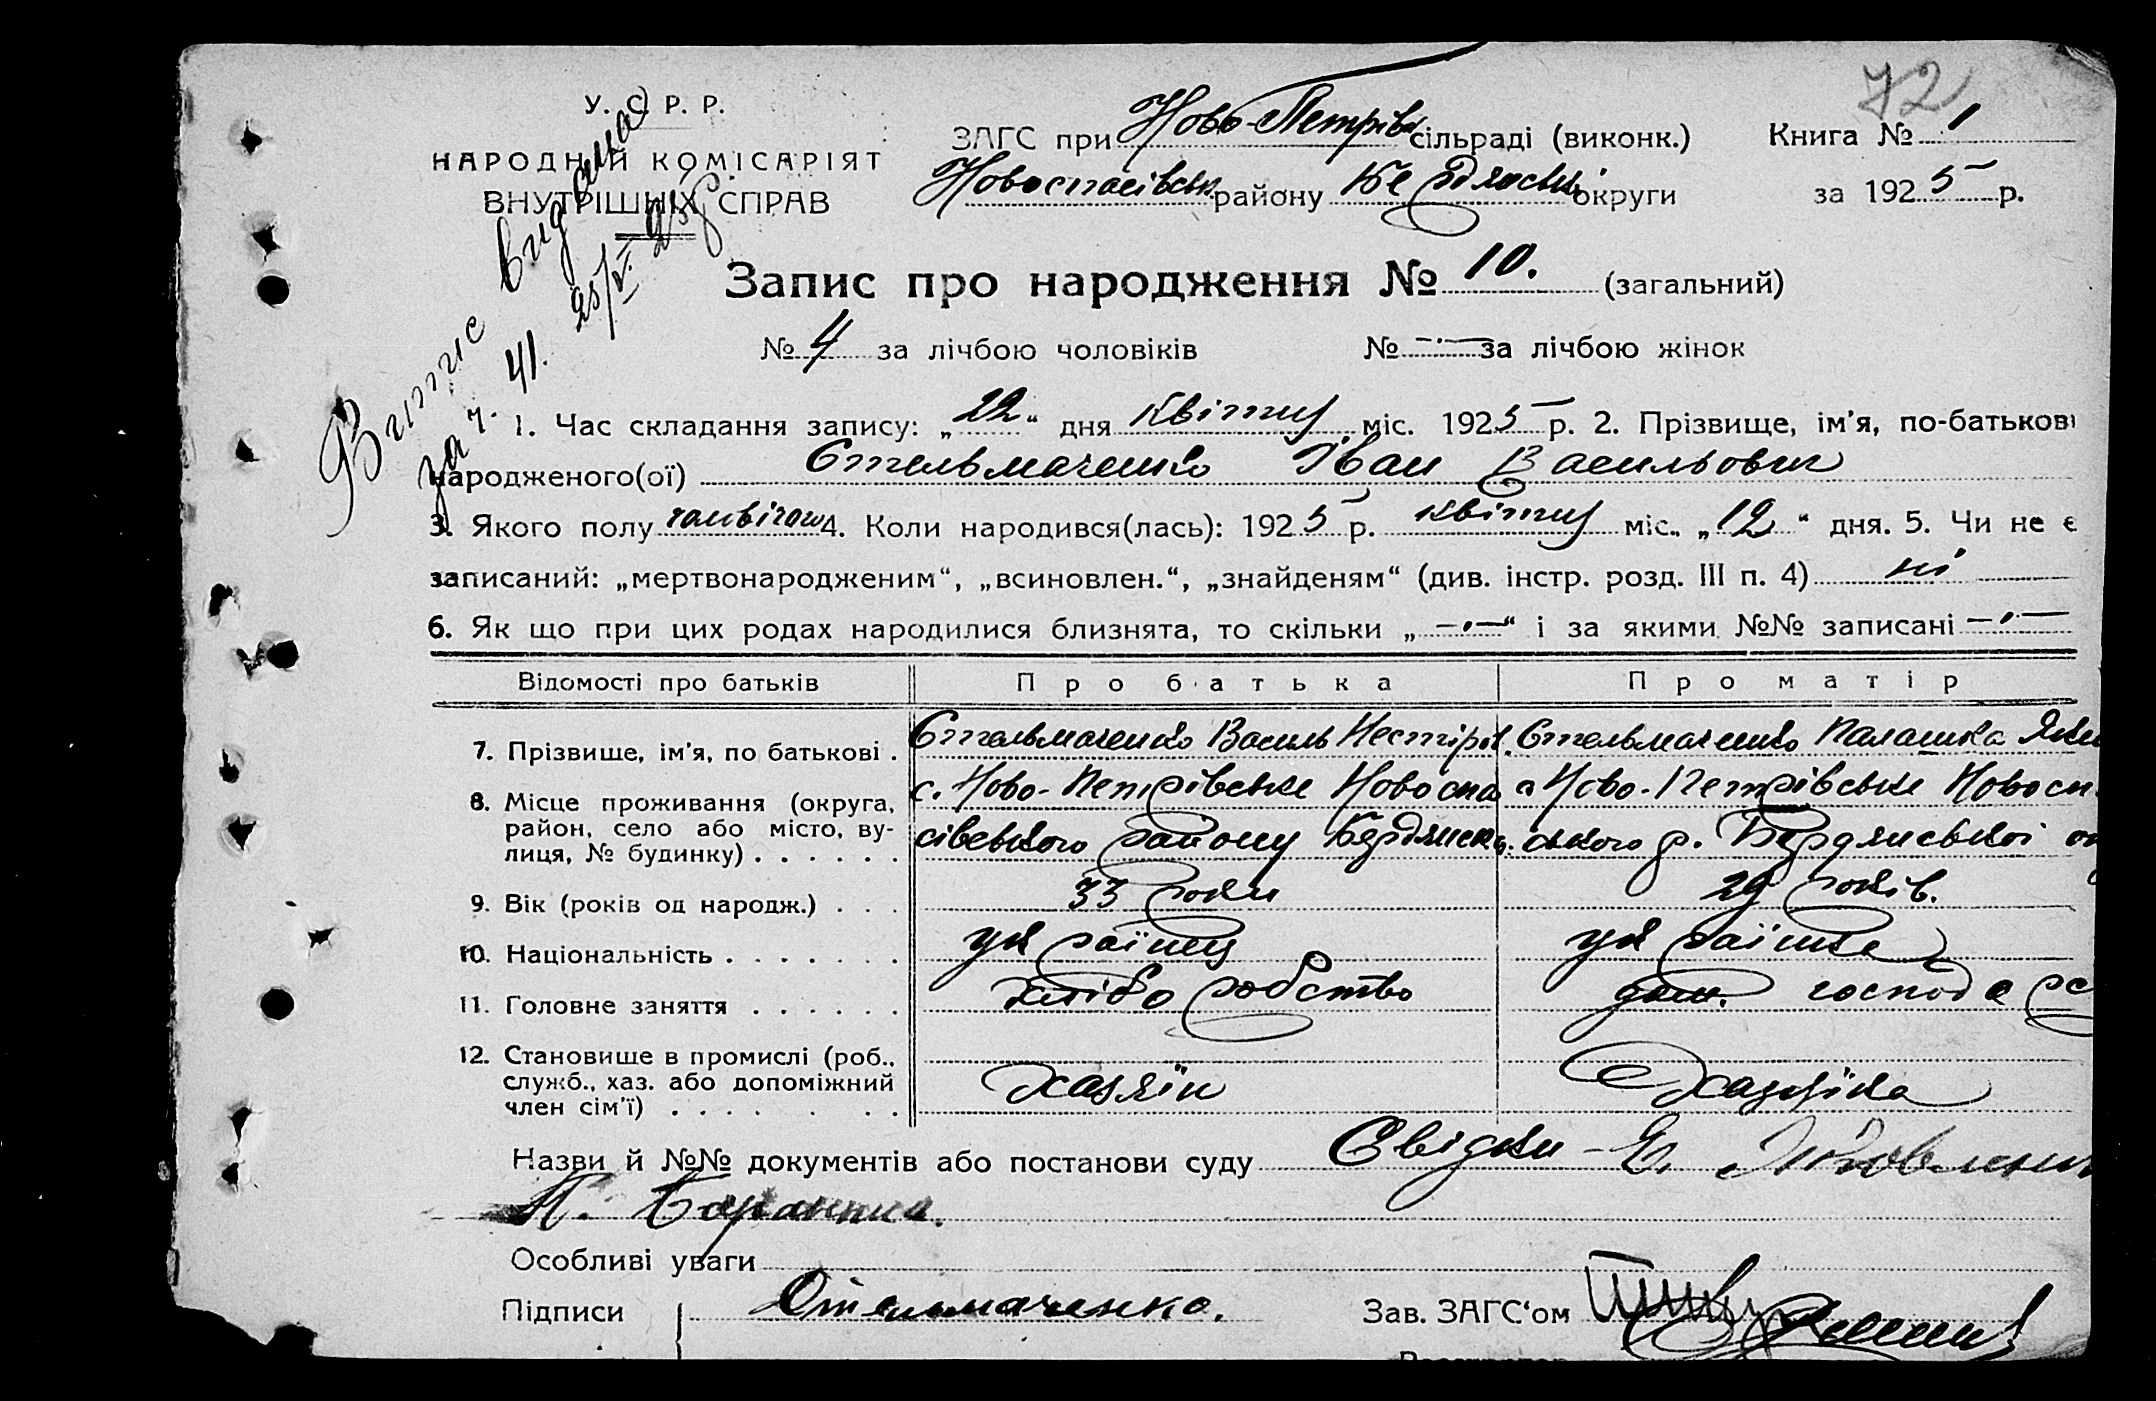 72
У. С. Р. Р.
НАРОДНИЙ КОМІСАРІЯТ
ВНУТРІШНІХ СПРАВ
ЗАГС при Ново-Петрівс сільраді (виконк.) Книга № 1
Новоспасівськ району Бердянськ округи за 1925 р.
Випис видана
за ч. 41. 25/V. 25р
Запис про народження № 10. (загальний)
№ 4 за лічбою чоловіків № -·- за лічбою жінок
1. Час складання запису: „22“ дня квітня міс. 1925 р. 2. Прізвище, ім'я, по-батькові
народженого(ої) Стельмаченко Іван Васильович
3. Якого полу 4. Коли народився(лась): 1925 р. квітня міс. „12“ дня. 5. Чи не є
записаний: „мертвонародженим“, „всиновлен.“, „знайденям“ (див. інстр. розд. III п. 4) ні
6. Як що при цих родах народилися близнята, то скільки „-·-“ і за якими №№ записані -·-
Відомості про батьків Про батька Про матір
7. Прізвище, ім'я, по батькові . Стельмаченко Василь Нестіров. Стельмаченко Палашка
8. Місце проживання (округа, район, село або місто, вулиця, № будинку) . . . . . .
с. Ново-Петрівське Новоспа
сівського району Бердянськ.
с Ново-Петрівське Новосп
ського р. Бердянської ок
9. Вік (років од народж.) . . . 33 роки 29 років.
10. Національність . . . . . . . українец українка
11. Головне заняття . . . . . . хліборобство дом. господар
12. Становище в промислі (роб., служб., хаз. або допоміжний член сім'ї) . . . . . . Хазяїн Хазяїка
Назви й №№ документів або постанови суду Свідки - Е. Яковленк
П.
Особливі уваги
Підписи { Стельмаченко. Зав. ЗАГС‘ом